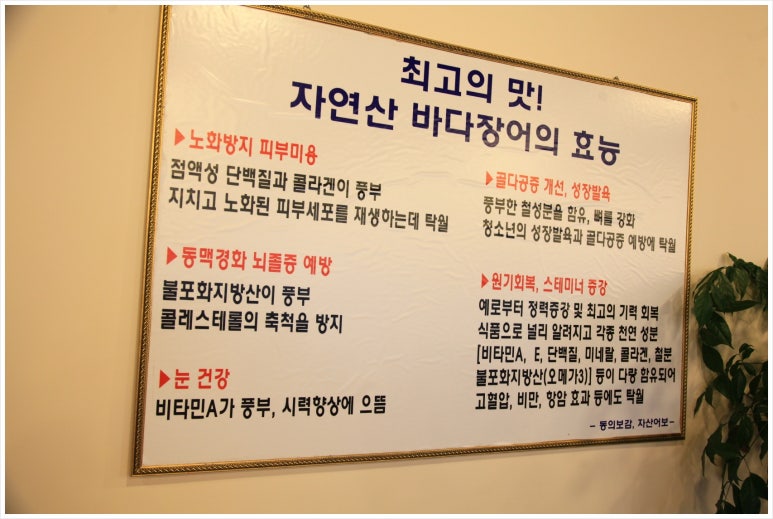 최고의 맛!
자연산 바다장어의 효능
▶노화방지 피부미용
점액성 단백질과 콜라겐이 풍부
지치고 노화된 피부세포를 재생하는데 탁월
▶동맥경화 뇌졸증 예방
불포화지방산이 풍부
콜레스테롤의 축척을 방지
▶눈 건강
비타민A가 풍부, 시력향상에 으뜸
▶골다공증 개선, 성장발육
풍부한 철성분을 함유, 뼈를 강화
청소년의 성장발육과 골다공증 예방에 탁월
▶원기회복, 스테미너 증강
예로부터 정력증강 및 최고의 기력 회복
식품으로 널리 알려지고 각종 천연 성분
[비타민A, E, 단백질, 미네랄, 콜라겐, 철분
불포화지방산(오메가3)] 등이 다량 함유되어
고혈압, 비만, 항암 효과 등에도 탁월
- 동의보감, 자산어보-